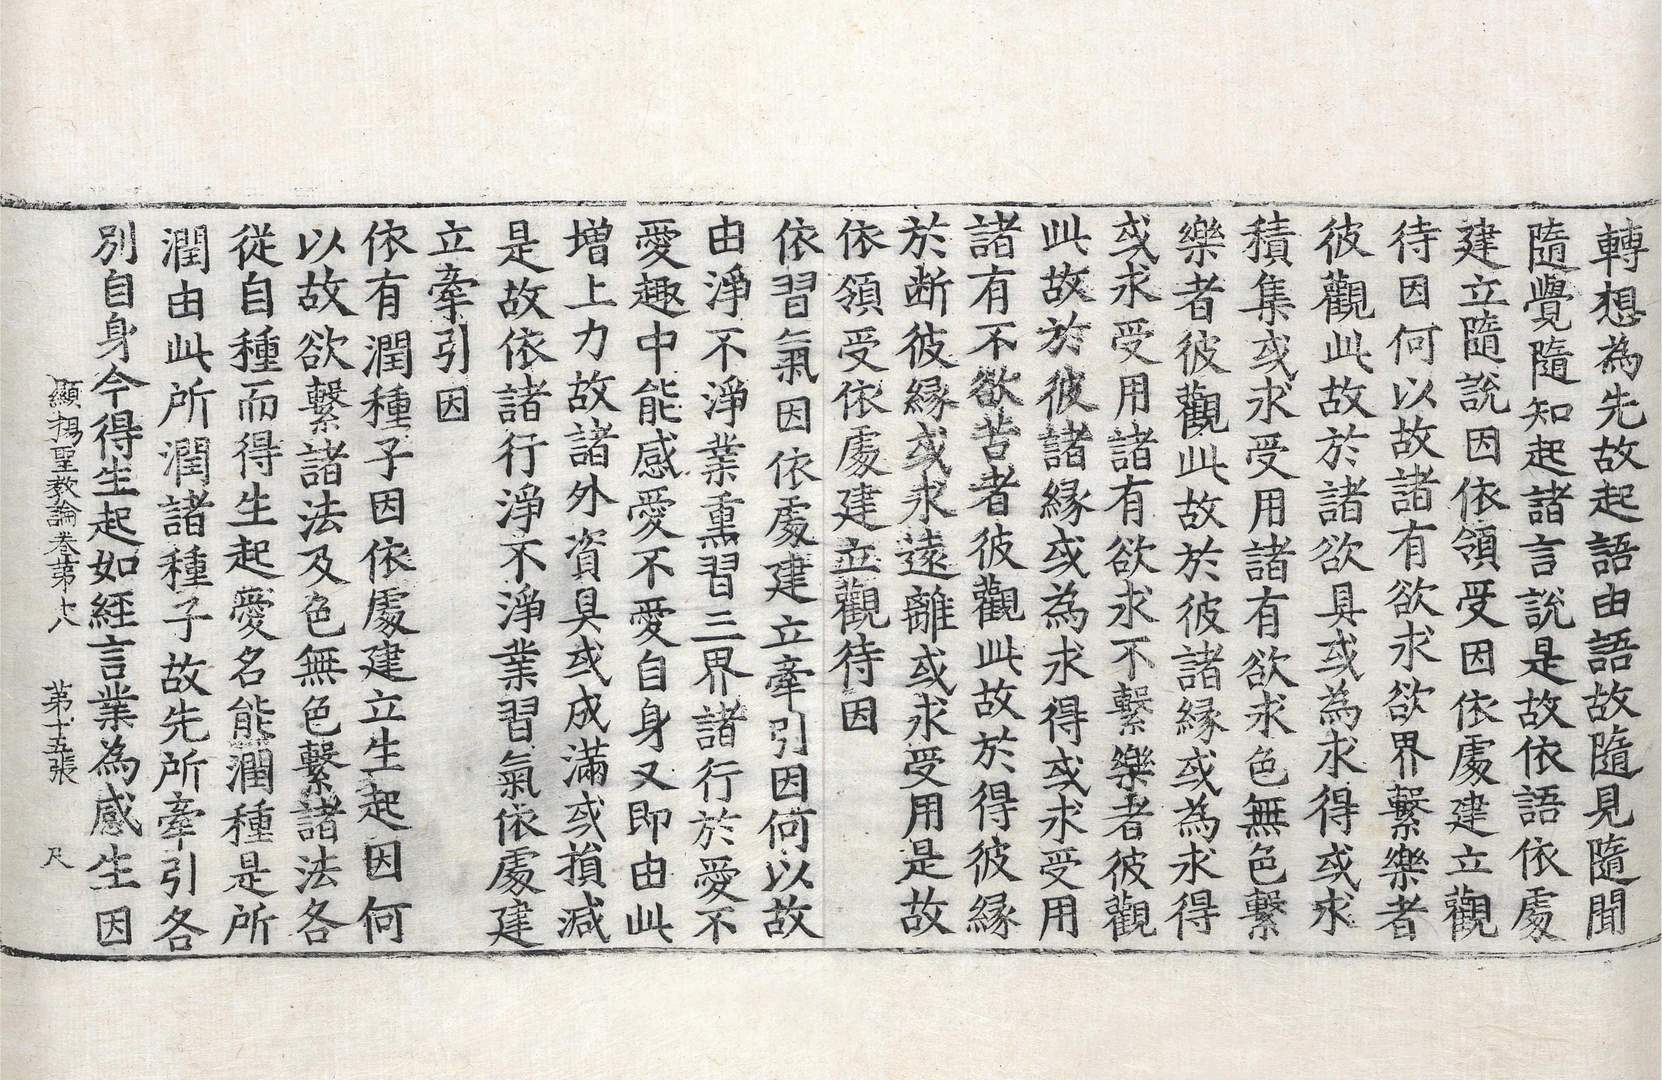 轉想為先故起語由語故隨見隨聞
隨覺隨知起諸言說是故依語依處
建立隨說因依領受因依處建立觀
待因何以故諸有欲求欲界繫樂者
彼觀此故於諸欲具或為求得或求
積集或求受用諸有欲求色無色繫
樂者彼觀此故於彼諸緣或為求得
或求受用諸有欲求不繫樂者彼觀
此故於彼諸緣或為求得或求受用
諸有不欲苦者彼觀此故於得彼緣
於断彼緣或求遠離或求受用是故
依領受依處建立觀待因
依習氣因依處建立牽引因何以故
由淨不淨業熏習三界諸行於愛不
愛趣中能感愛不愛自身又即由此
增上力故諸外資具或成滿或損減
是故依諸行淨不淨業習氣依處建
立牽引因
依有潤種子因依處建立生起因何
以故欲繫諸法及色無色繫諸法各
從自種而得生起愛名能潤種是所
潤由此所潤諸種子故先所牽引各
別自身今得生起如經言業為感生因
顯揚聖教論卷第十八　第十五張　尺